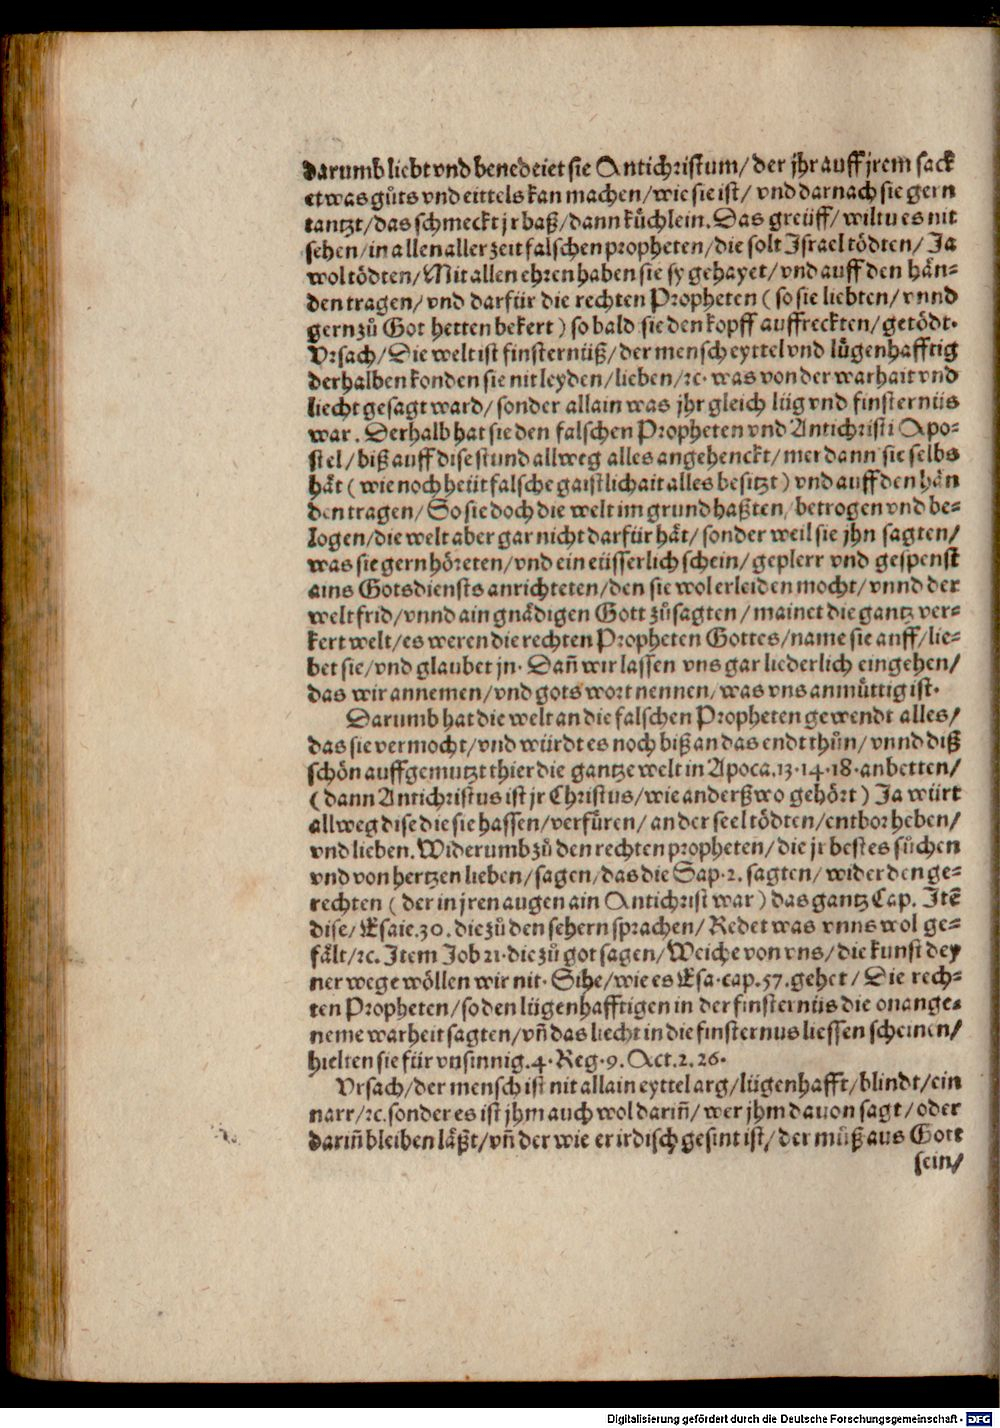 darumb liebt vnd benedeiet sie Antichristum/ der jhr auff jrem sack
etwas gůts vnd eittels kan machen/ wie sie ist/ vnd darnach sie gern
tantzt/ das schmeckt jr baß/ dann kůchlein. Das greüff/ wiltu es nit
sehen/ in allen aller zeit falschen propheten/ die solt Israel tödten/ Ja
wol tödten/ Mit allen ehren haben sie sy gehayet/ vnd auff den hän-
den tragen/ vnd darfür die rechten Propheten ( so sie liebten/ vnnd
gern zů Got hetten bekert ) so bald sie den kopff auffreckten/ getödt.
Vrsach/ Die welt ist finsternüß/ der mensch eyttel vnd lůgenhafftig
derhalben konden sie nit leyden/ lieben/ ꝛc. was von der warhait vnd
liecht gesagt ward/ sonder allain was jhr gleich lüg vnd finsternüs
war. Derhalb hat sie den falschen Propheten vnd Antichristi Apo-
stel/ biß auff dise stund allweg alles angehenckt/ mer dann sie selbs
hät ( wie noch heüt falsche gaistlichait alles besitzt ) vnd auff den hän
den tragen/ So sie doch die welt im grund haßten/ betrogen vnd be-
logen/ die welt aber gar nicht darfür hät/ sonder weil sie jhn sagten/
was sie gern höreten/ vnd ein eüsserlich schein/ geplerr vnd gespenst
ains Gotsdiensts anrichteten/ den sie wol erleiden mocht/ vnnd der
welt frid/ vnnd ain gnädigen Gott zůsagten/ mainet die gantz ver-
kert welt/ es weren die rechten Propheten Gottes/ name sie auff/ lie-
bet sie/ vnd glaubet jn. Dañ wir lassen vns gar liederlich eingehen/
das wir annemen/ vnd gots wort nennen/ was vns anmůttig ist.
Darumb hat die welt an die falschen Propheten gewendt alles/
das sie vermocht/ vnd würdt es noch biß an das endt thůn/ vnnd diß
schön auffgemutzt thier die gantze welt in Apoca. 13. 14. 18. anbetten/
( dann Antichristus ist jr Christus/ wie anderßwo gehört ) Ja würt
allweg dise die sie hassen/ verfüren/ an der seel tödten/ entbor heben/
vnd lieben. Widerumb zů den rechten propheten/ die jr bestes sůchen
vnd von hertzen lieben/ sagen/ das die Sap. 2. sagten/ wider den ge-
rechten ( der in jren augen ain Antichrist war ) das gantz Cap. Itẽ
dise/ Esaie. 30. die zů den sehern sprachen/ Redet was vnns wol ge-
fält/ ꝛc. Item Job 21. die zů got sagen/ Weiche von vns/ die kunst dey
ner wege wöllen wir nit. Sihe/ wie es Esa. cap. 57. gehet/ Die rech-
ten Propheten/ so den lügenhafftigen in der finsternüs die onange-
neme warheit sagten/ vñ das liecht in die finsternus liessen scheinen/
hielten sie für vnsinnig. 4. Reg. 9. Act. 2. 26.
Vrsach/ der mensch ist nit allain eyttel arg/ lügenhafft/ blindt/ ein
narr/ ꝛc. sonder es ist jhm auch wol dariñ/ wer jhm dauon sagt/ oder
dariñ bleiben läßt/ vñ der wie er irdisch gesint ist/ der můß aus Gott
sein/
Digitalisierung gefördert durch die Deutsche Forschungsgemeinschaft - DFG